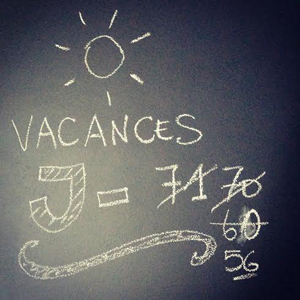 VACANCES
J - 71 70
60
56